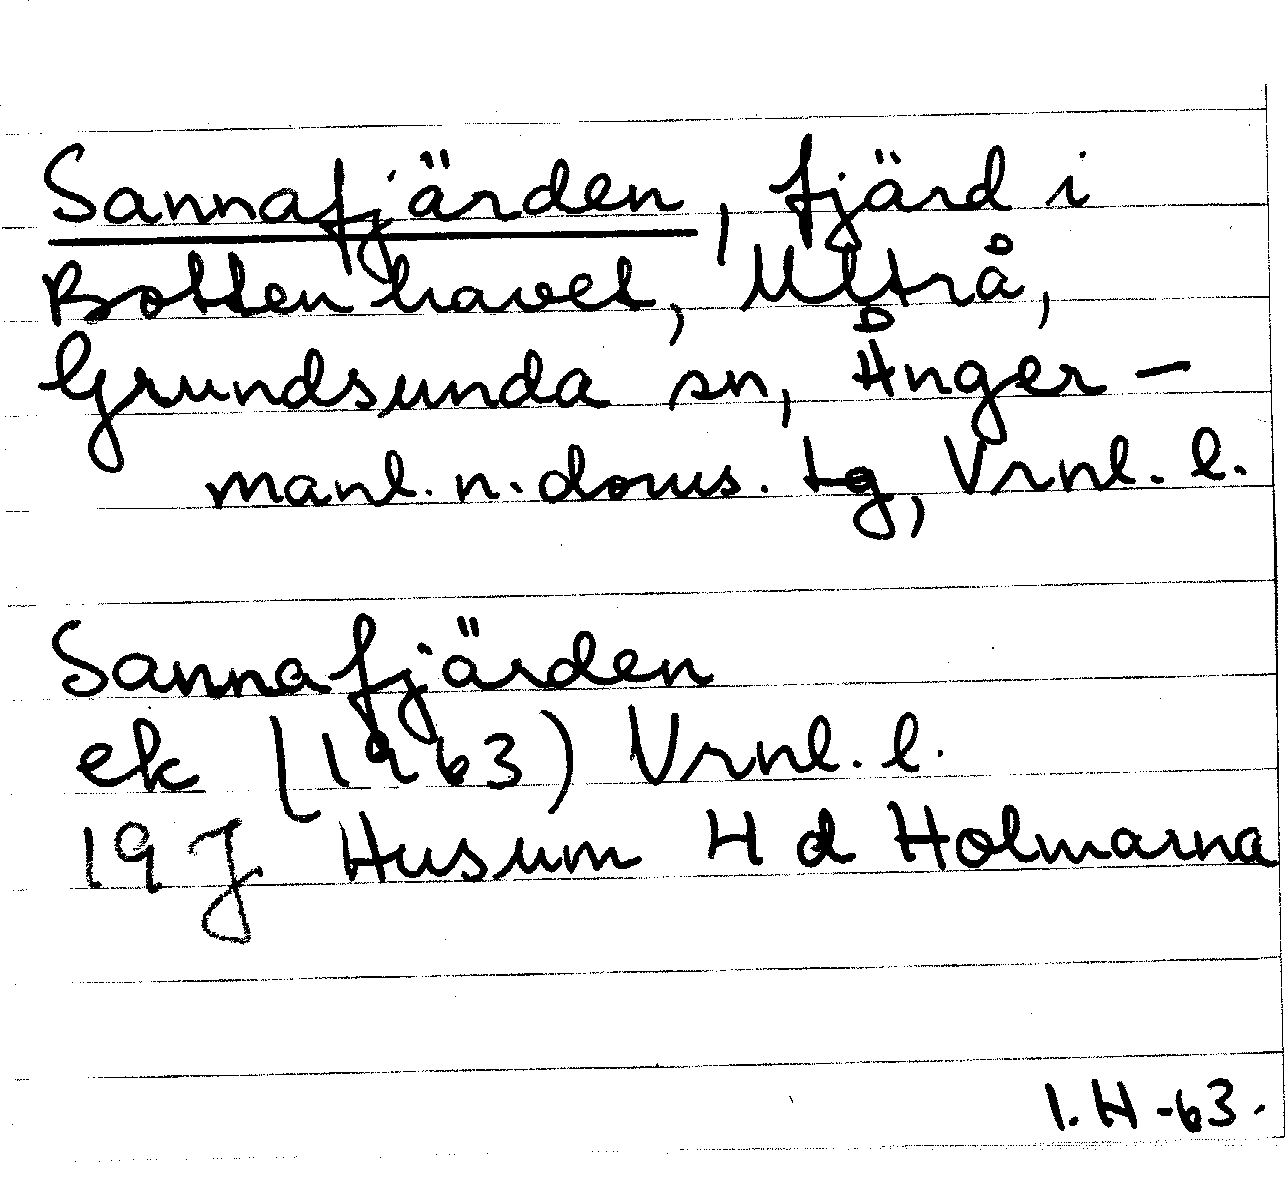 Sannafjärden, fjärd i
Bottenhavet, Ultrå,
Grundsunda sn, Ånger-
manl. n. doms. tg, Vrnl. l.
Sannafjärden
ek (1963) Vrnl. l.
19 J Husum H d Holmarna
I. H -63.